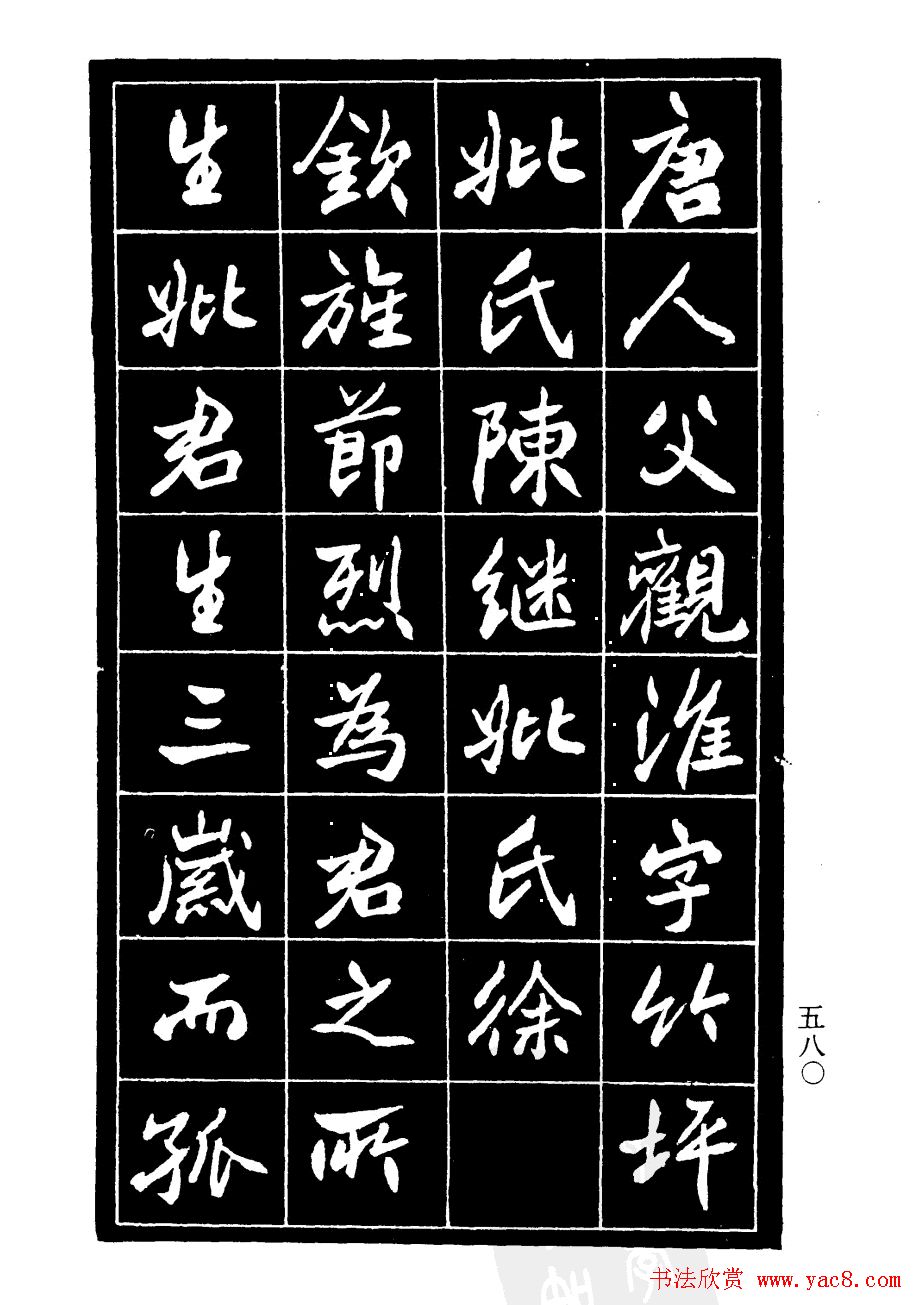 唐人父觀淮字竹坪
妣氏陳继妣氏徐
欽旌節烈為君之所
生妣君生三嵗而孤
五八〇
书法欣赏 www.yac8.com